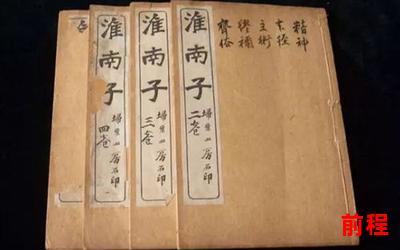 精神
本經
主術
繆稱
齊俗
淮南子
埽葉山房石印
二卷
淮南子
埽葉山房石印
三卷
淮南子
埽葉山房石印
四卷
前程